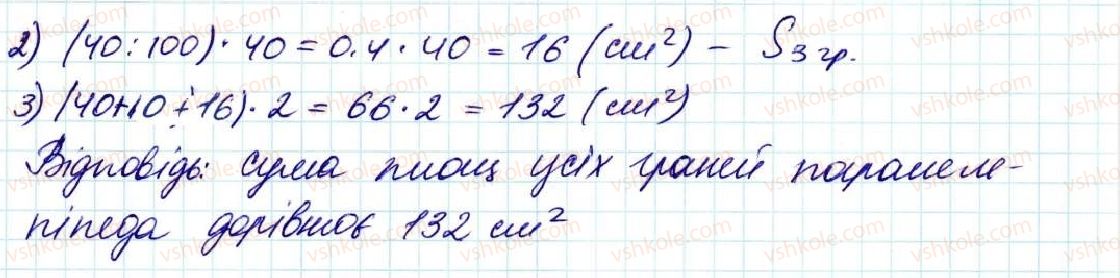 2) (40:100)·40 = 0,4·40 = 16 (см²) – S₃ гр.
3) (40+10+16)·2 = 66·2 = 132 (см²)
Відповідь: сума площ усіх граней паралеле-
піпеда дорівнює 132 см²